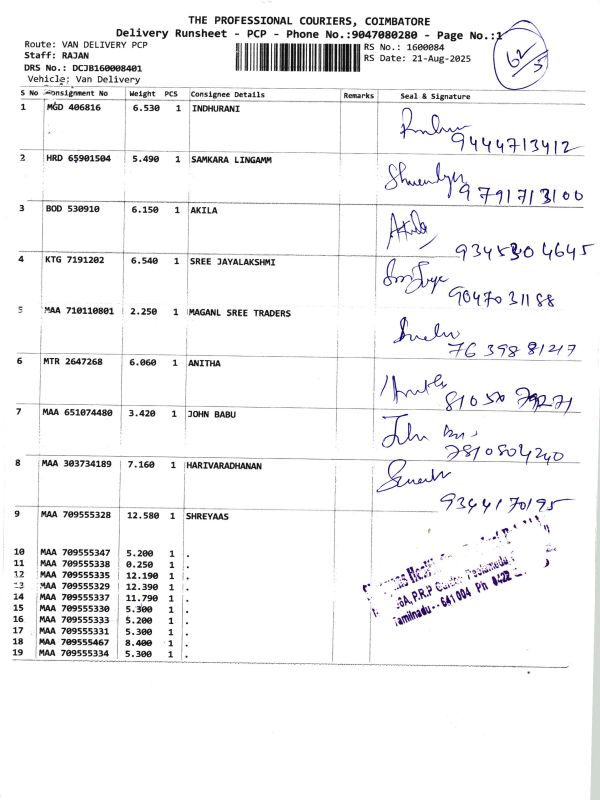 THE PROFESSIONAL COURIERS, COIMBATORE
Delivery Runsheet - PCP - Phone No.:9047080280 - Page No.:1
Route: VAN DELIVERY PCP
RS No.: 1600084
Staff: RAJAN
RS Date: 21-Aug-2025
DRS No.: DCJB160008401
Vehicle: Van Delivery
62/5
S No Consignment No Weight PCS Consignee Details Remarks Seal & Signature
1 MGD 406816 6.530 1 INDHURANI
9444713412
2 HRD 65901504 5.490 1 SAMKARA LINGAMM
9791713100
3 BOD 530910 6.150 1 AKILA
Akila
9345304645
4 KTG 7191202 6.540 1 SREE JAYALAKSHMI
9047031188
5 MAA 710110801 2.250 1 MAGANL SREE TRADERS
7639881217
6 MTR 2647268 6.060 1 ANITHA
81050
7 MAA 651074480 3.420 1 JOHN BABU
John
7810804240
8 MAA 303734189 7.160 1 HARIVARADHANAN
9344170195
9 MAA 709555328 12.580 1 SHREYAAS
10 MAA 709555347 5.200 1 .
11 MAA 709555338 0.250 1 .
12 MAA 709555335 12.190 1 .
13 MAA 709555329 12.390 1 .
14 MAA 709555337 11.790 1 .
15 MAA 709555330 5.300 1 .
16 MAA 709555333 5.200 1 .
17 MAA 709555331 5.300 1 .
18 MAA 709555467 8.400 1 .
19 MAA 709555334 5.300 1 .
Tamilnadu - 641 004 Ph 0422